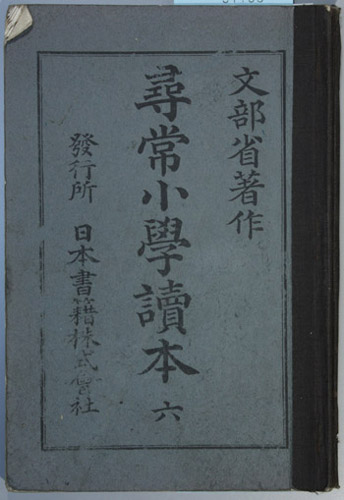 文部省著作
尋常小學讀本 六
發行所 日本書籍株式會社